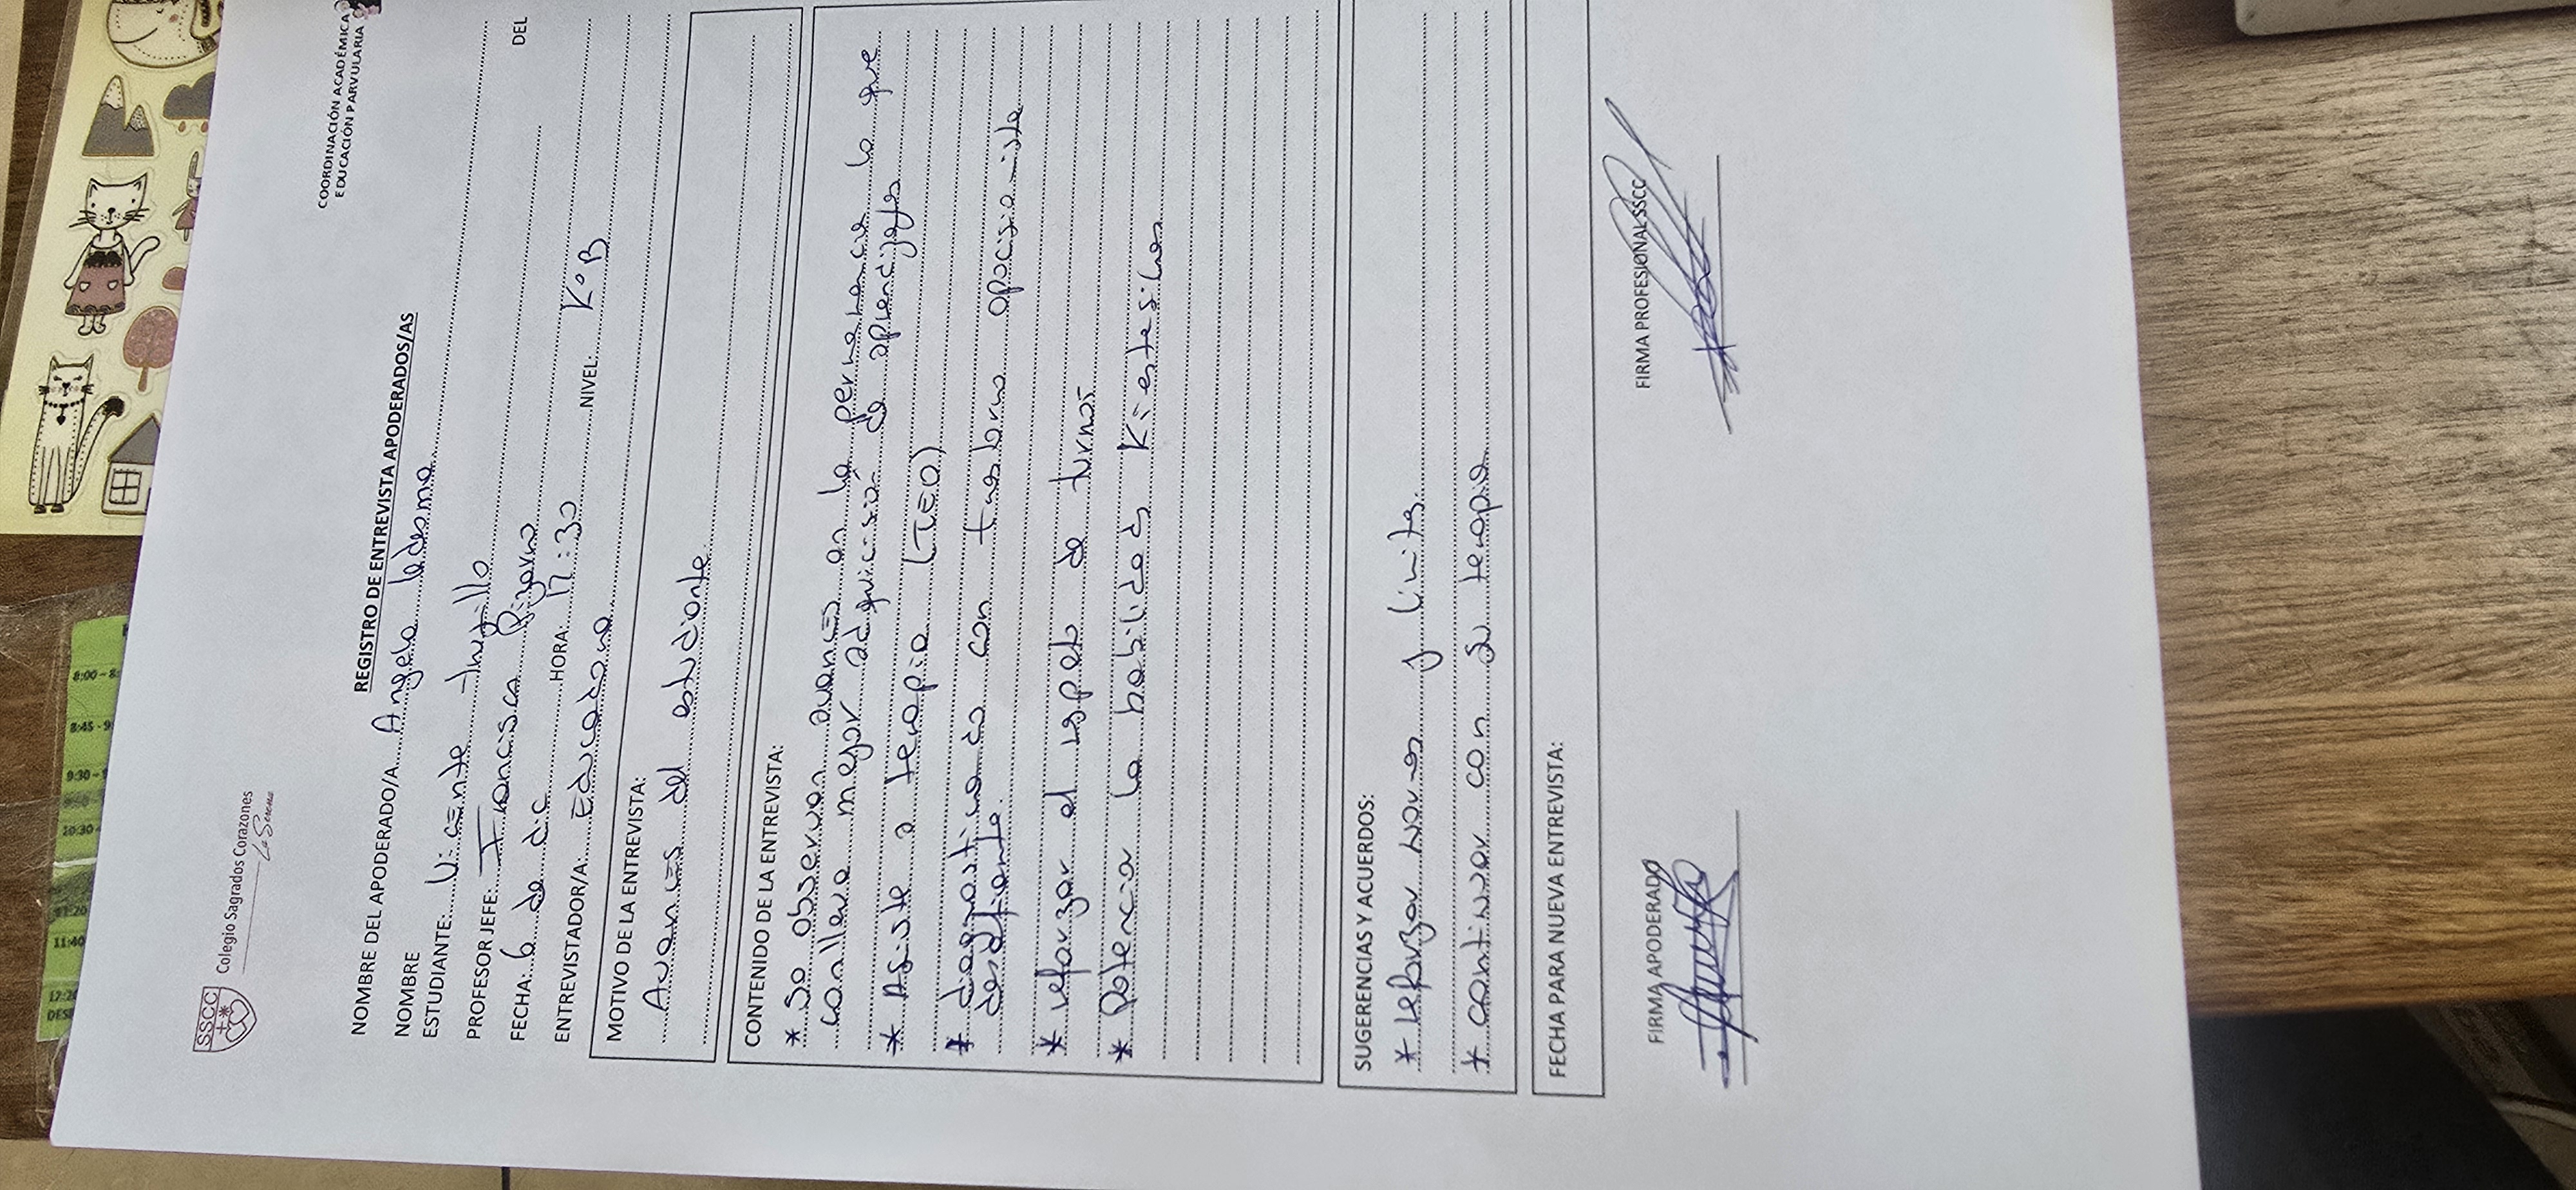 SSCC
Colegio Sagrados Corazones
La Serena
COORDINACIÓN ACADÉMICA
EDUCACIÓN PARVULARIA
REGISTRO DE ENTREVISTA APODERADOS/AS
NOMBRE DEL APODERADO/A Angela ledezma
NOMBRE DEL
ESTUDIANTE: Vicente Trujillo
PROFESOR JEFE: Francisca Pizarro
FECHA: 6 de dic HORA: 17:30 NIVEL: K°B
ENTREVISTADOR/A: Educadora
MOTIVO DE LA ENTREVISTA:
Avances del estudiante.
CONTENIDO DE LA ENTREVISTA:
* Se observan avances en la permanencia lo que
conlleva mejor adquisición de aprendizajes
* Asiste a terapia (TEO)
* diagnosticado con trastorno oposicionista
desafiante.
* reforzar el respeto de turnos
* Potenciar la habilidad Kinestesica
SUGERENCIAS Y ACUERDOS:
* reforzar normas y limites.
* continuar con su terapia
FECHA PARA NUEVA ENTREVISTA:
FIRMA APODERADO
FIRMA PROFESIONAL SSCC
8:00 - 8:
8:45 - 9
9:30 -
10:30 -
11:20
11:40